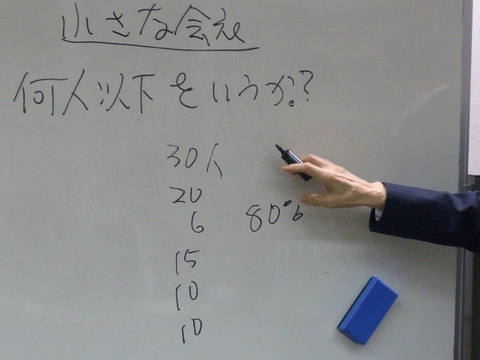 小さな会社
何人以下をいうか??
30人
20
6 80%
15
10
10